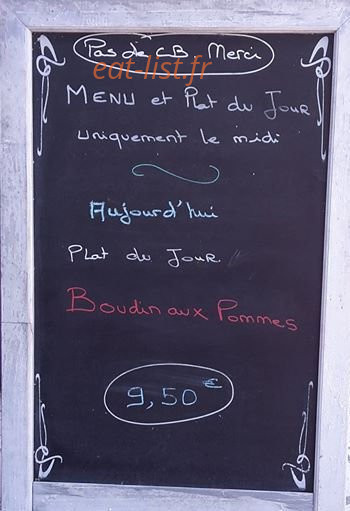 Pas de CB. Merci
eat-list.fr
MENU et Plat du JOUR
uniquement le midi
Aujourd'hui
PLat du JOUR.
Boudin aux Pommes
9,50 €